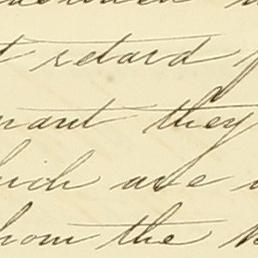 t retard
nant they
hich are
hom the